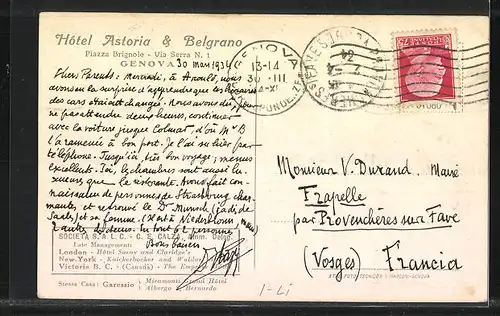 Hôtel Astoria & Belgrano
Piazza Brignole - Via Serra N. 1
GENOVA
30 mars 1934
Chers Parents : mercredi, à Arould, nous
avons eu la surprise d'apprendre que les horaires
des cars étaient changés. Nous avons dû, pour
ne pas attendre deux heures, continuer
avec la voiture jusque Colmar, d'où Mr B
l'a ramenée à bon port. Je l'ai su hier par
téléphone. Jusqu'ici, très bon voyage ; menus
excellents. Ici, les chambres sont aussi lu-
xueuses que le restaurant. Avons fait con-
naissance de personnes de Strasbourg char-
mantes et retrouvé le Dr Munsch (jadis de
Saales) et sa femme. (Il est à Niederbronn)
2 autres docteurs. En tout 62 personnes
Bons baisers
SOCIETÀ S. A. L. C. - C. E. CALZA, Amm. Deleg.
Late Management:
London - Hôtel Savoy and Claridge's
New-York - Knickerbocker and Waldorf
Victoria B. C. - (Canadà) - The Empress
Stessa Casa: Garessio Miramonti Grand Hôtel
Albergo Bernardo
GENOVA
13-14
30 III
XII
CORRISPONDENZE
75
Monsieur V. Durand. Maire
Frapelle
par Provenchères sur Fave
(Vosges) Francia
GENOVA
1-Li